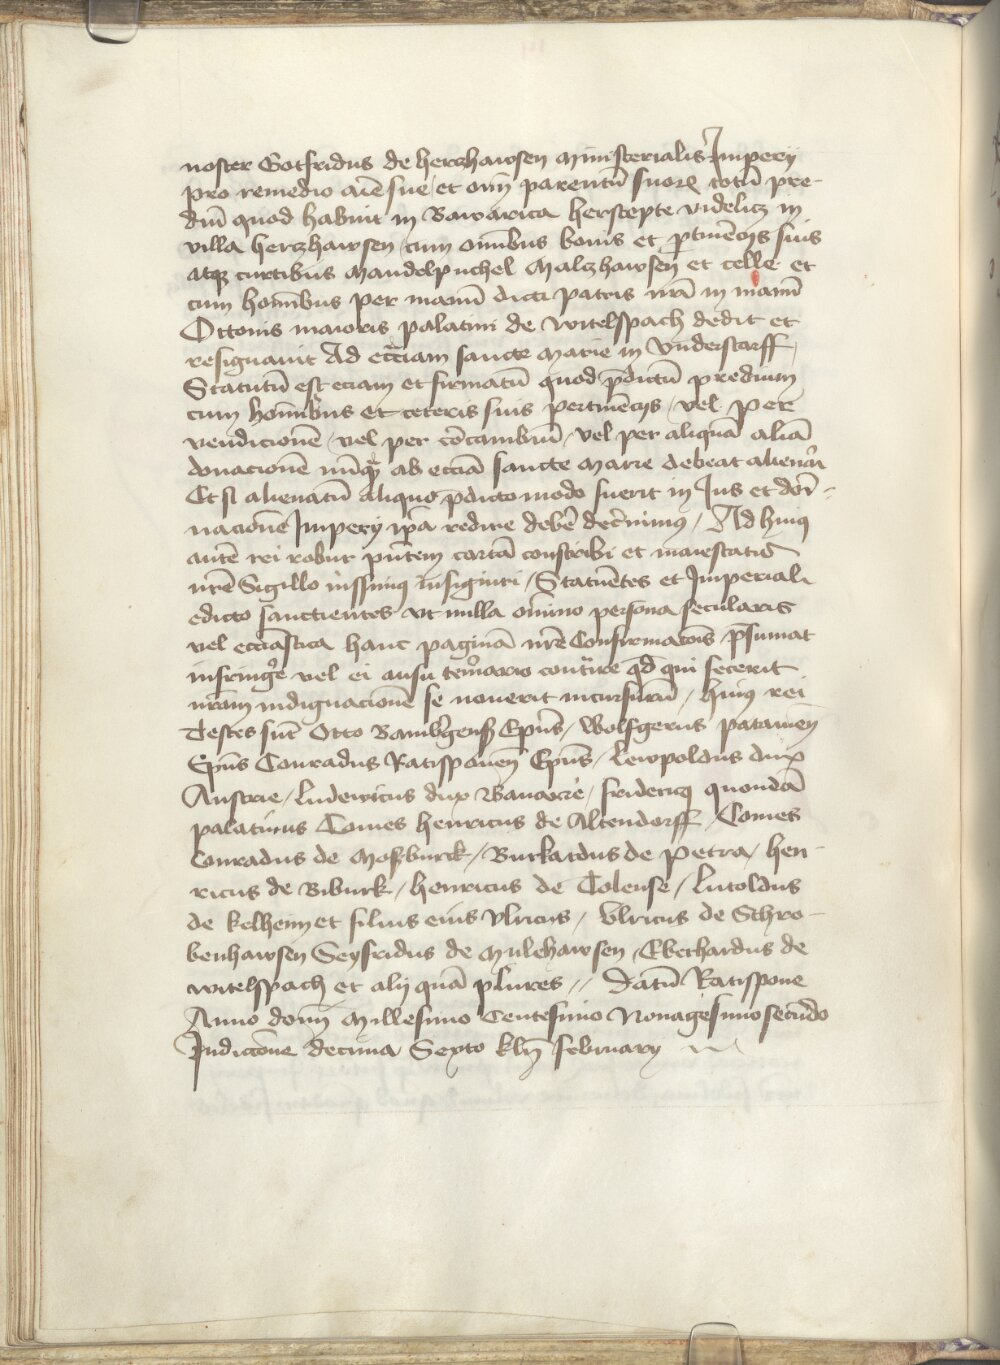 noster Gotfridus de herczhawsen Ministerialis Impery
pro remedio aīe sue et om̄ parentū suorꝫ totū pre-
diū quod habuit in Bawarica herstepte videlicꝫ in
villa herczhawsen cum omībus bonis et ꝑtinēcijs suis
atqꝫ curtibus Mandelpuchel Malczhawsen et celle et
cum homībus per manū dicti patris nrī in manū
Ottonis maioris palatini de witelspach dedit et
resignauit Ad eccīam sancte Marie in Vnderstorff,
Statutū est eciam et firmatū quod p̄dictū predium
cum homībus et ceteris suis pertinēcijs, vel per
vendicionē, vel per cōcambiū, vel per aliquā aliā
donacionē nūqꝫ ab eccīa sancte Marie debeat alienari
Et si alienatū aliquo p̄dicto modo fuerit in Jus et domi-
nacionē Impery ip̄a redire debē decr̄nimus, Ad huiꝰ
autē rei robur pn̄tem cartā conscribi et maiestatis
nrē Sigillo iussimꝰ insigniri, Statuētes et Imperiali
edicto sanctientes vt nulla om̄ino persona secularis
vel ecciāstica hanc paginā nrē Confirmacōis p̄sumat
infringe᷑ vel ei ausu tem̄ario contu᷑re qd qui fecerit
nrām indignacionē se nouerit incursurū, huiꝰ rei
Testes sūt Otto Bamb᷑gensꝭ Ep̄us, Wolfgerus patauien̄
Ep̄us Conradus Ratisponen̄ Ep̄us, lewpoldus dux
Austrie, ludewicus dux Bauarie, fridericꝰ quondā
palatinus Comes henricus de Altendorff, Comes
Conradus de Mosburck, Burkardus de petra, hen-
ricus de Biburk, henricus de Tolense, lutoldus
de kelheim et filius eius vlricus, Vlricus de Schro-
benhawsen Seyfridus de Mulehawsen, Eberhardus de
witelspach et alij quā plures,, Datū Ratispone
Anno domī Millesimo Centesimo Nonagesimosecūdo
Indiccōne decima Sexto kln̄ february